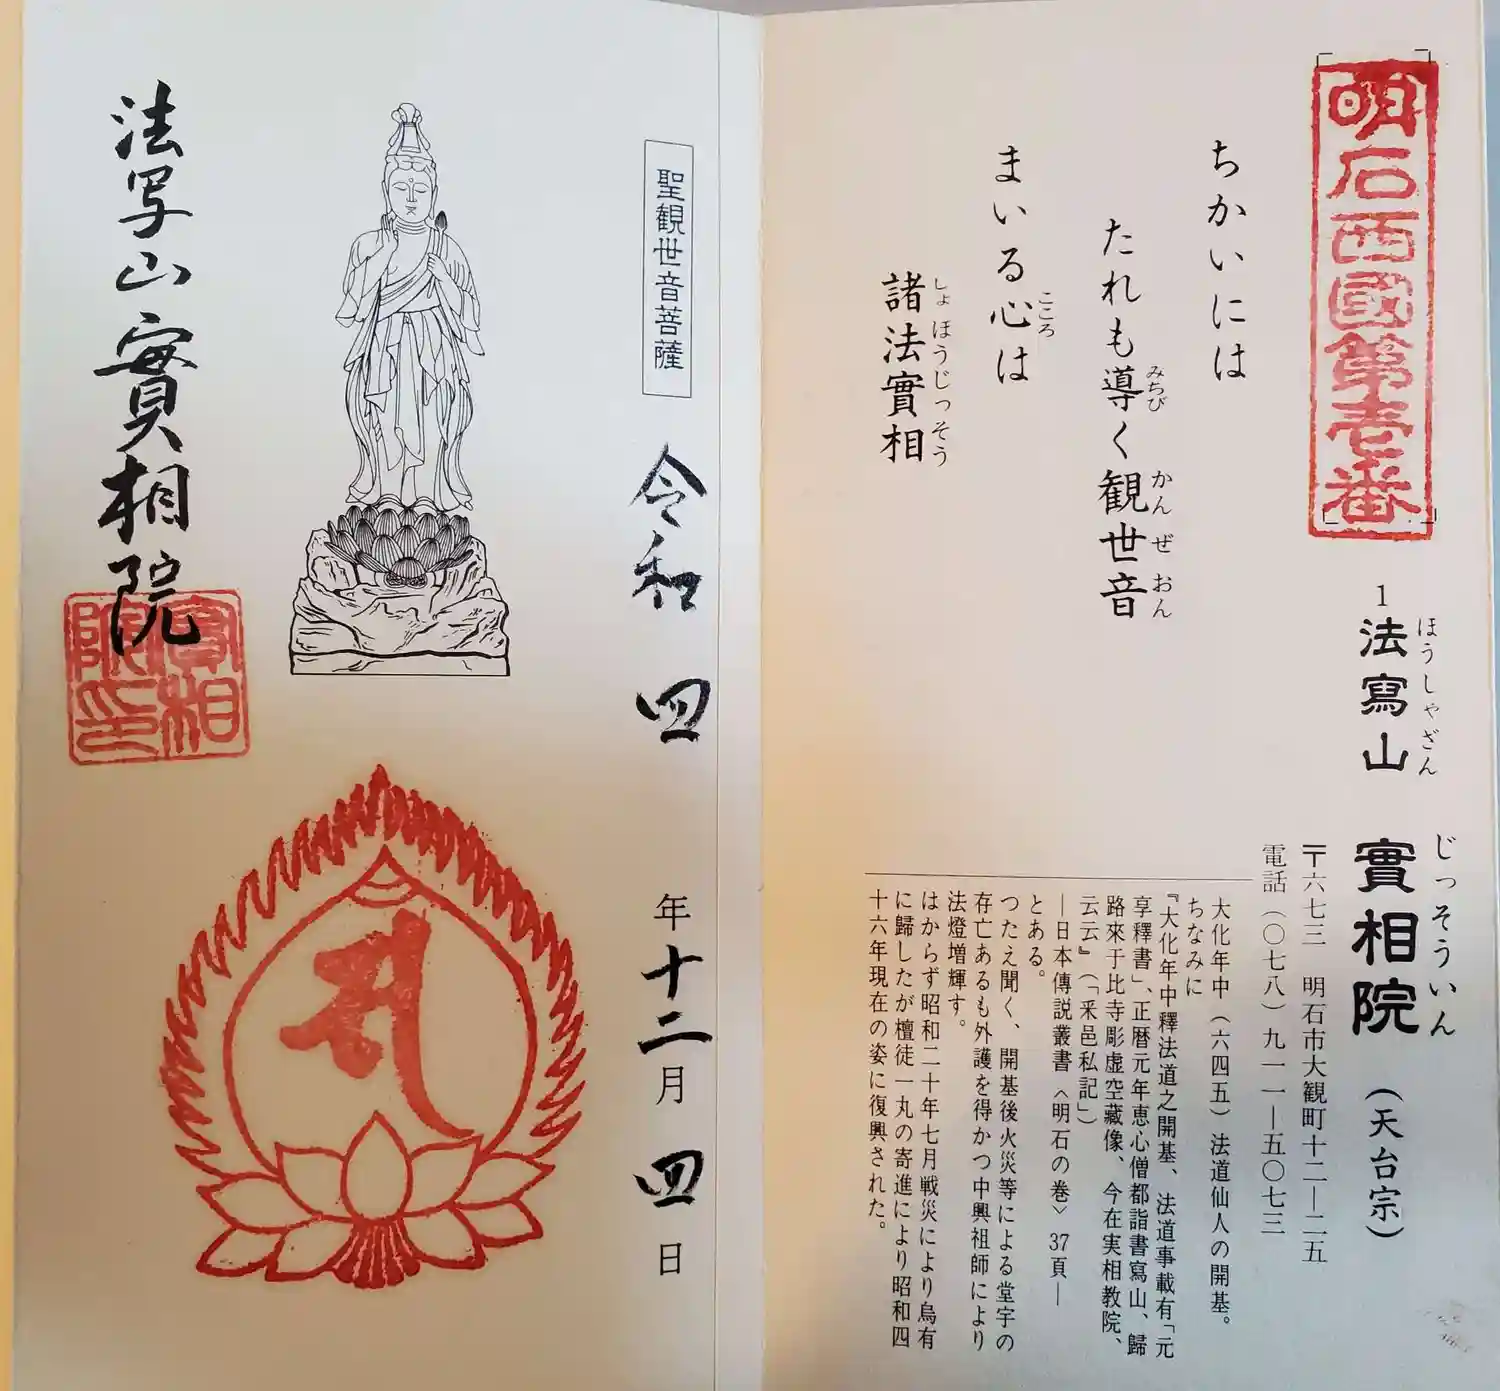 明石西國第壱番
1 法寫山 實相院 (天台宗)
ほうしゃざん じっそういん
〒六七三 明石市大観町十二―二五
電話(〇七八)九一一―五〇七三
ちかいには
たれも導く観世音
みちび かんぜおん
まいる心は
こころ
諸法實相
しょほうじっそう
大化年中(六四五)法道仙人の開基。
ちなみに
『大化年中釋法道之開基、法道事載有「元
享釋書」、正暦元年恵心僧都詣書寫山、歸
路來于比寺彫虚空藏像、今在実相教院、
云云』(「釆邑私記」)
―日本傳説叢書〈明石の巻〉37頁―
とある。
つたえ聞く、開基後火災等による堂宇の
存亡あるも外護を得かつ中興祖師により
法燈増輝す。
はからず昭和二十年七月戦災により烏有
に歸したが檀徒一丸の寄進により昭和四
十六年現在の姿に復興された。
聖観世音菩薩
令和四年十二月四日
法写山實相院
實相
院印